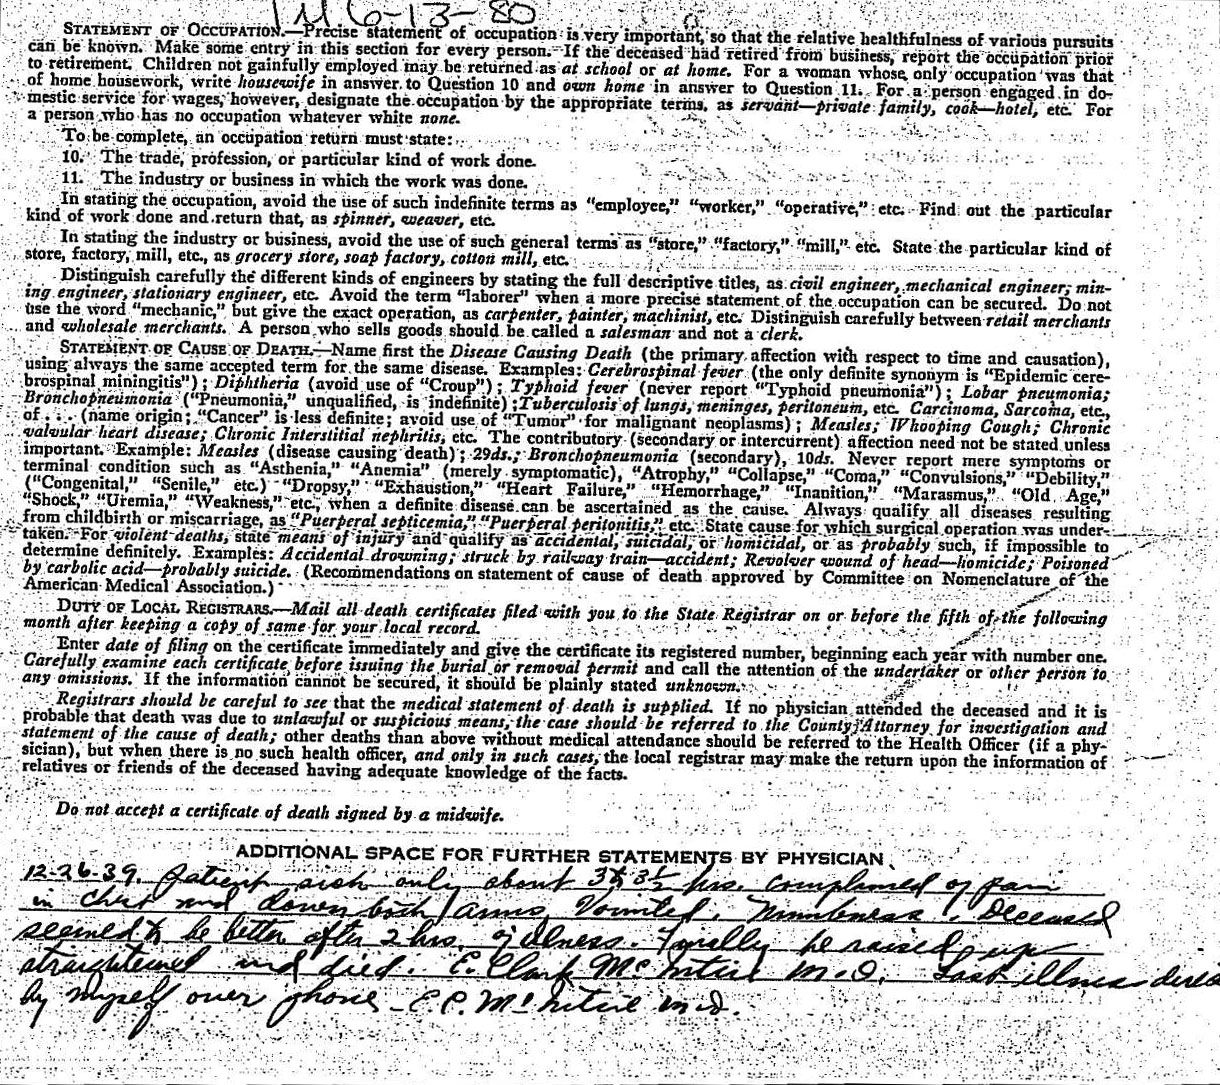 1M6-13-80
STATEMENT OF OCCUPATION.—Precise statement of occupation is very important, so that the relative healthfulness of various pursuits
can be known. Make some entry in this section for every person. If the deceased had retired from business, report the occupation prior
to retirement. Children not gainfully employed may be returned as at school or at home. For a woman whose only occupation was that
of home housework, write housewife in answer to Question 10 and own home in answer to Question 11. For a person engaged in do-
mestic service for wages, however, designate the occupation by the appropriate terms, as servant—private family, cook—hotel, etc. For
a person who has no occupation whatever white none.
To be complete, an occupation return must state:
10. The trade, profession, or particular kind of work done.
11. The industry or business in which the work was done.
In stating the occupation, avoid the use of such indefinite terms as "employee," "worker," "operative," etc. Find out the particular
kind of work done and return that, as spinner, weaver, etc.
In stating the industry or business, avoid the use of such general terms as "store," "factory," "mill," etc. State the particular kind of
store, factory, mill, etc., as grocery store, soap factory, cotton mill, etc.
Distinguish carefully the different kinds of engineers by stating the full descriptive titles, as civil engineer, mechanical engineer, min-
ing engineer, stationary engineer, etc. Avoid the term "laborer" when a more precise statement of the occupation can be secured. Do not
use the word "mechanic," but give the exact operation, as carpenter, painter, machinist, etc. Distinguish carefully between retail merchants
and wholesale merchants. A person who sells goods should be called a salesman and not a clerk.
STATEMENT OF CAUSE OF DEATH.—Name first the Disease Causing Death (the primary affection with respect to time and causation),
using always the same accepted term for the same disease. Examples: Cerebrospinal fever (the only definite synonym is "Epidemic cere-
brospinal miningitis"); Diphtheria (avoid use of "Croup"); Typhoid fever (never report "Typhoid pneumonia"); Lobar pneumonia;
Bronchopneumonia ("Pneumonia," unqualified, is indefinite); Tuberculosis of lungs, meninges, peritoneum, etc. Carcinoma, Sarcoma, etc.,
of . . . (name origin; "Cancer" is less definite; avoid use of "Tumor" for malignant neoplasms); Measles; Whooping Cough; Chronic
valvular heart disease; Chronic Interstitial nephritis, etc. The contributory (secondary or intercurrent) affection need not be stated unless
important. Example: Measles (disease causing death); 29ds.; Bronchopneumonia (secondary), 10ds. Never report mere symptoms or
terminal condition such as "Asthenia," "Anemia" (merely symptomatic), "Atrophy," "Collapse," "Coma," "Convulsions," "Debility,"
("Congenital," "Senile," etc.) "Dropsy," "Exhaustion," "Heart Failure," "Hemorrhage," "Inanition," "Marasmus," "Old Age,"
"Shock," "Uremia," "Weakness," etc., when a definite disease can be ascertained as the cause. Always qualify all diseases resulting
from childbirth or miscarriage, as "Puerperal septicemia," "Puerperal peritonitis," etc. State cause for which surgical operation was under-
taken. For violent deaths, state means of injury and qualify as accidental, suicidal, or homicidal, or as probably such, if impossible to
determine definitely. Examples: Accidental drowning; struck by railway train—accident; Revolver wound of head—homicide; Poisoned
by carbolic acid—probably suicide. (Recommendations on statement of cause of death approved by Committee on Nomenclature of the
American Medical Association.)
DUTY OF LOCAL REGISTRARS.—Mail all death certificates filed with you to the State Registrar on or before the fifth of the following
month after keeping a copy of same for your local record.
Enter date of filing on the certificate immediately and give the certificate its registered number, beginning each year with number one.
Carefully examine each certificate before issuing the burial or removal permit and call the attention of the undertaker or other person to
any omissions. If the information cannot be secured, it should be plainly stated unknown.
Registrars should be careful to see that the medical statement of death is supplied. If no physician attended the deceased and it is
probable that death was due to unlawful or suspicious means, the case should be referred to the County Attorney for investigation and
statement of the cause of death; other deaths than above without medical attendance should be referred to the Health Officer (if a phy-
sician), but when there is no such health officer, and only in such cases, the local registrar may make the return upon the information of
relatives or friends of the deceased having adequate knowledge of the facts.
Do not accept a certificate of death signed by a midwife.
ADDITIONAL SPACE FOR FURTHER STATEMENTS BY PHYSICIAN
12-26-39. Patient sick only about 3 to 3½ hrs. complained of pain
in chest and down both arms, Vomited. Numbness. Deceased
seemed to be better after 2 hrs. of illness. Finally he raised up
straightened and died. E. Clark McIntire M.D. Last illness
by myself over phone - E.C. McIntire M.D.